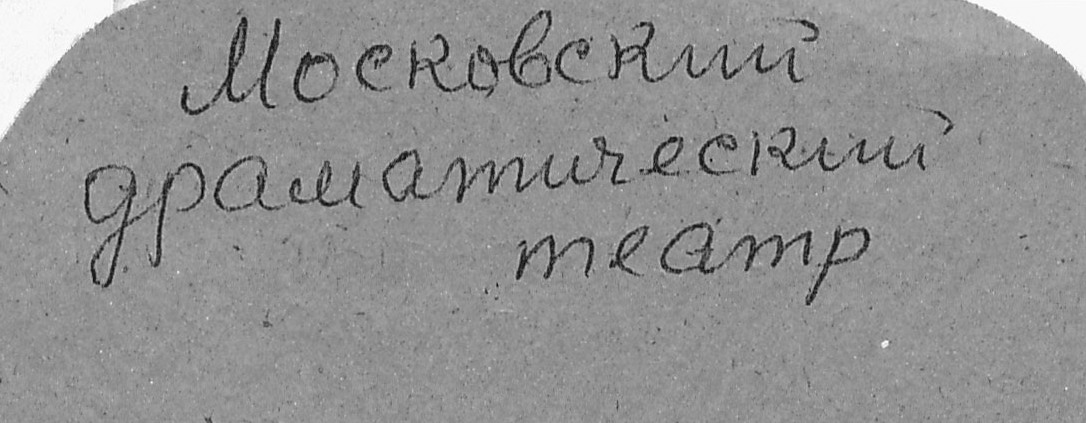 Московский
драматический
театр